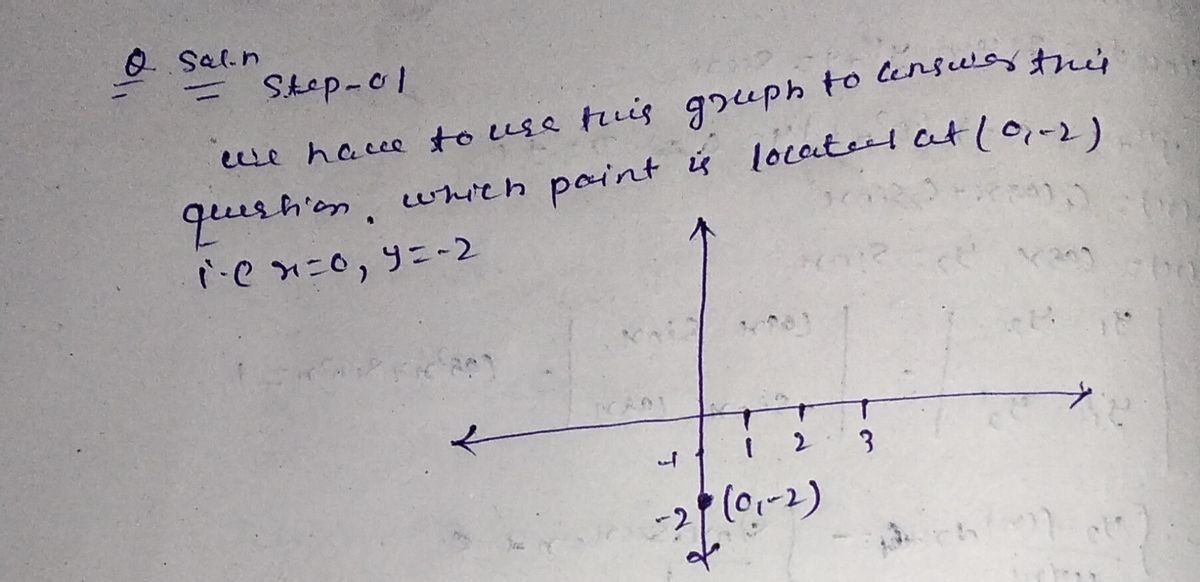 Q Sol.n
Step-01
we have to use this graph to answer this
question, which point is located at (0,-2)
i.e x=0, y=-2
1 2 3
-1
-2 (0,-2)